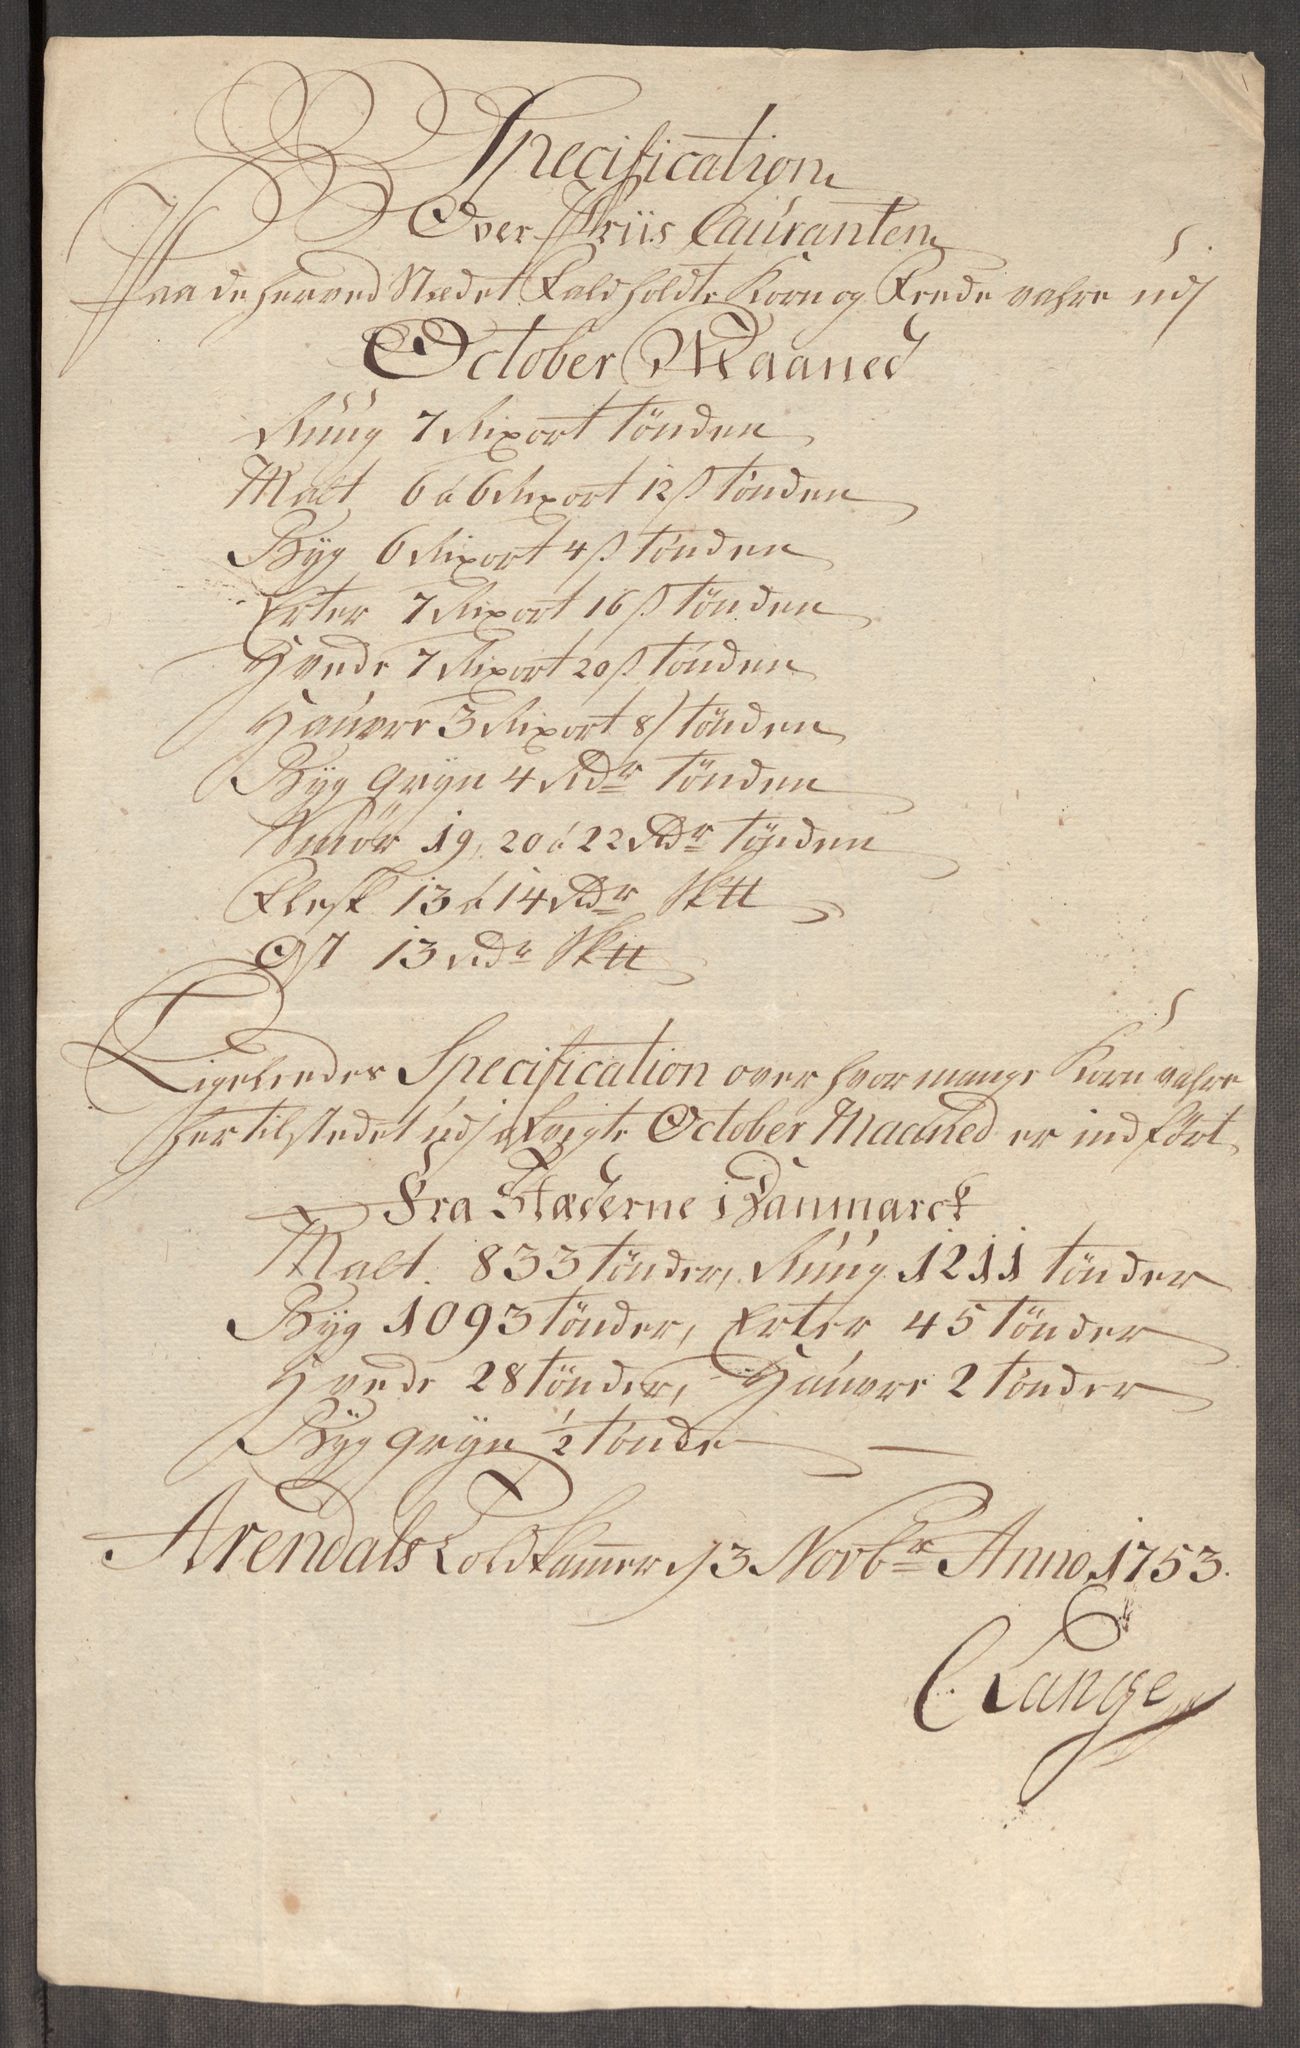 Specification
Over Priis Couranten
Paa de her ved Stædet Fald holdte Korn og Fede vahre udj
October Maaned
Rúúg 7 Rixort tönden
Malt 6 á 6 Rixort 12 ß tönden
Byg 6 Rixort 4 ß tönden
Erter 7 Rixort 16 ß tönden
Hvede 7 Rixort 20 ß tönden
Hauvre 3 Rixort 8 ß tönden
Byg gryn 4 Rdr tönden
Smör 19, 20 á 22 Rdr tönden
Flesk 13 á 14 Rdr Sktt
Ost 13 Rdr Sktt
Ligeledes Specification over hvor mange Korn vahre
her til stedet udj October Maaned er ind fört
Fra Stæderne i Danmarck
Malt. 833 tönder, Rúúg 1211 tönder
Byg 1093 tönder, Erter 45 tönder
Hvede 28 tönder, Hauvre 2 tönder
Byg gryn 1/2 tönde
Arendals Toldkammer d 3 Novbr Anno 1753.
C Lange